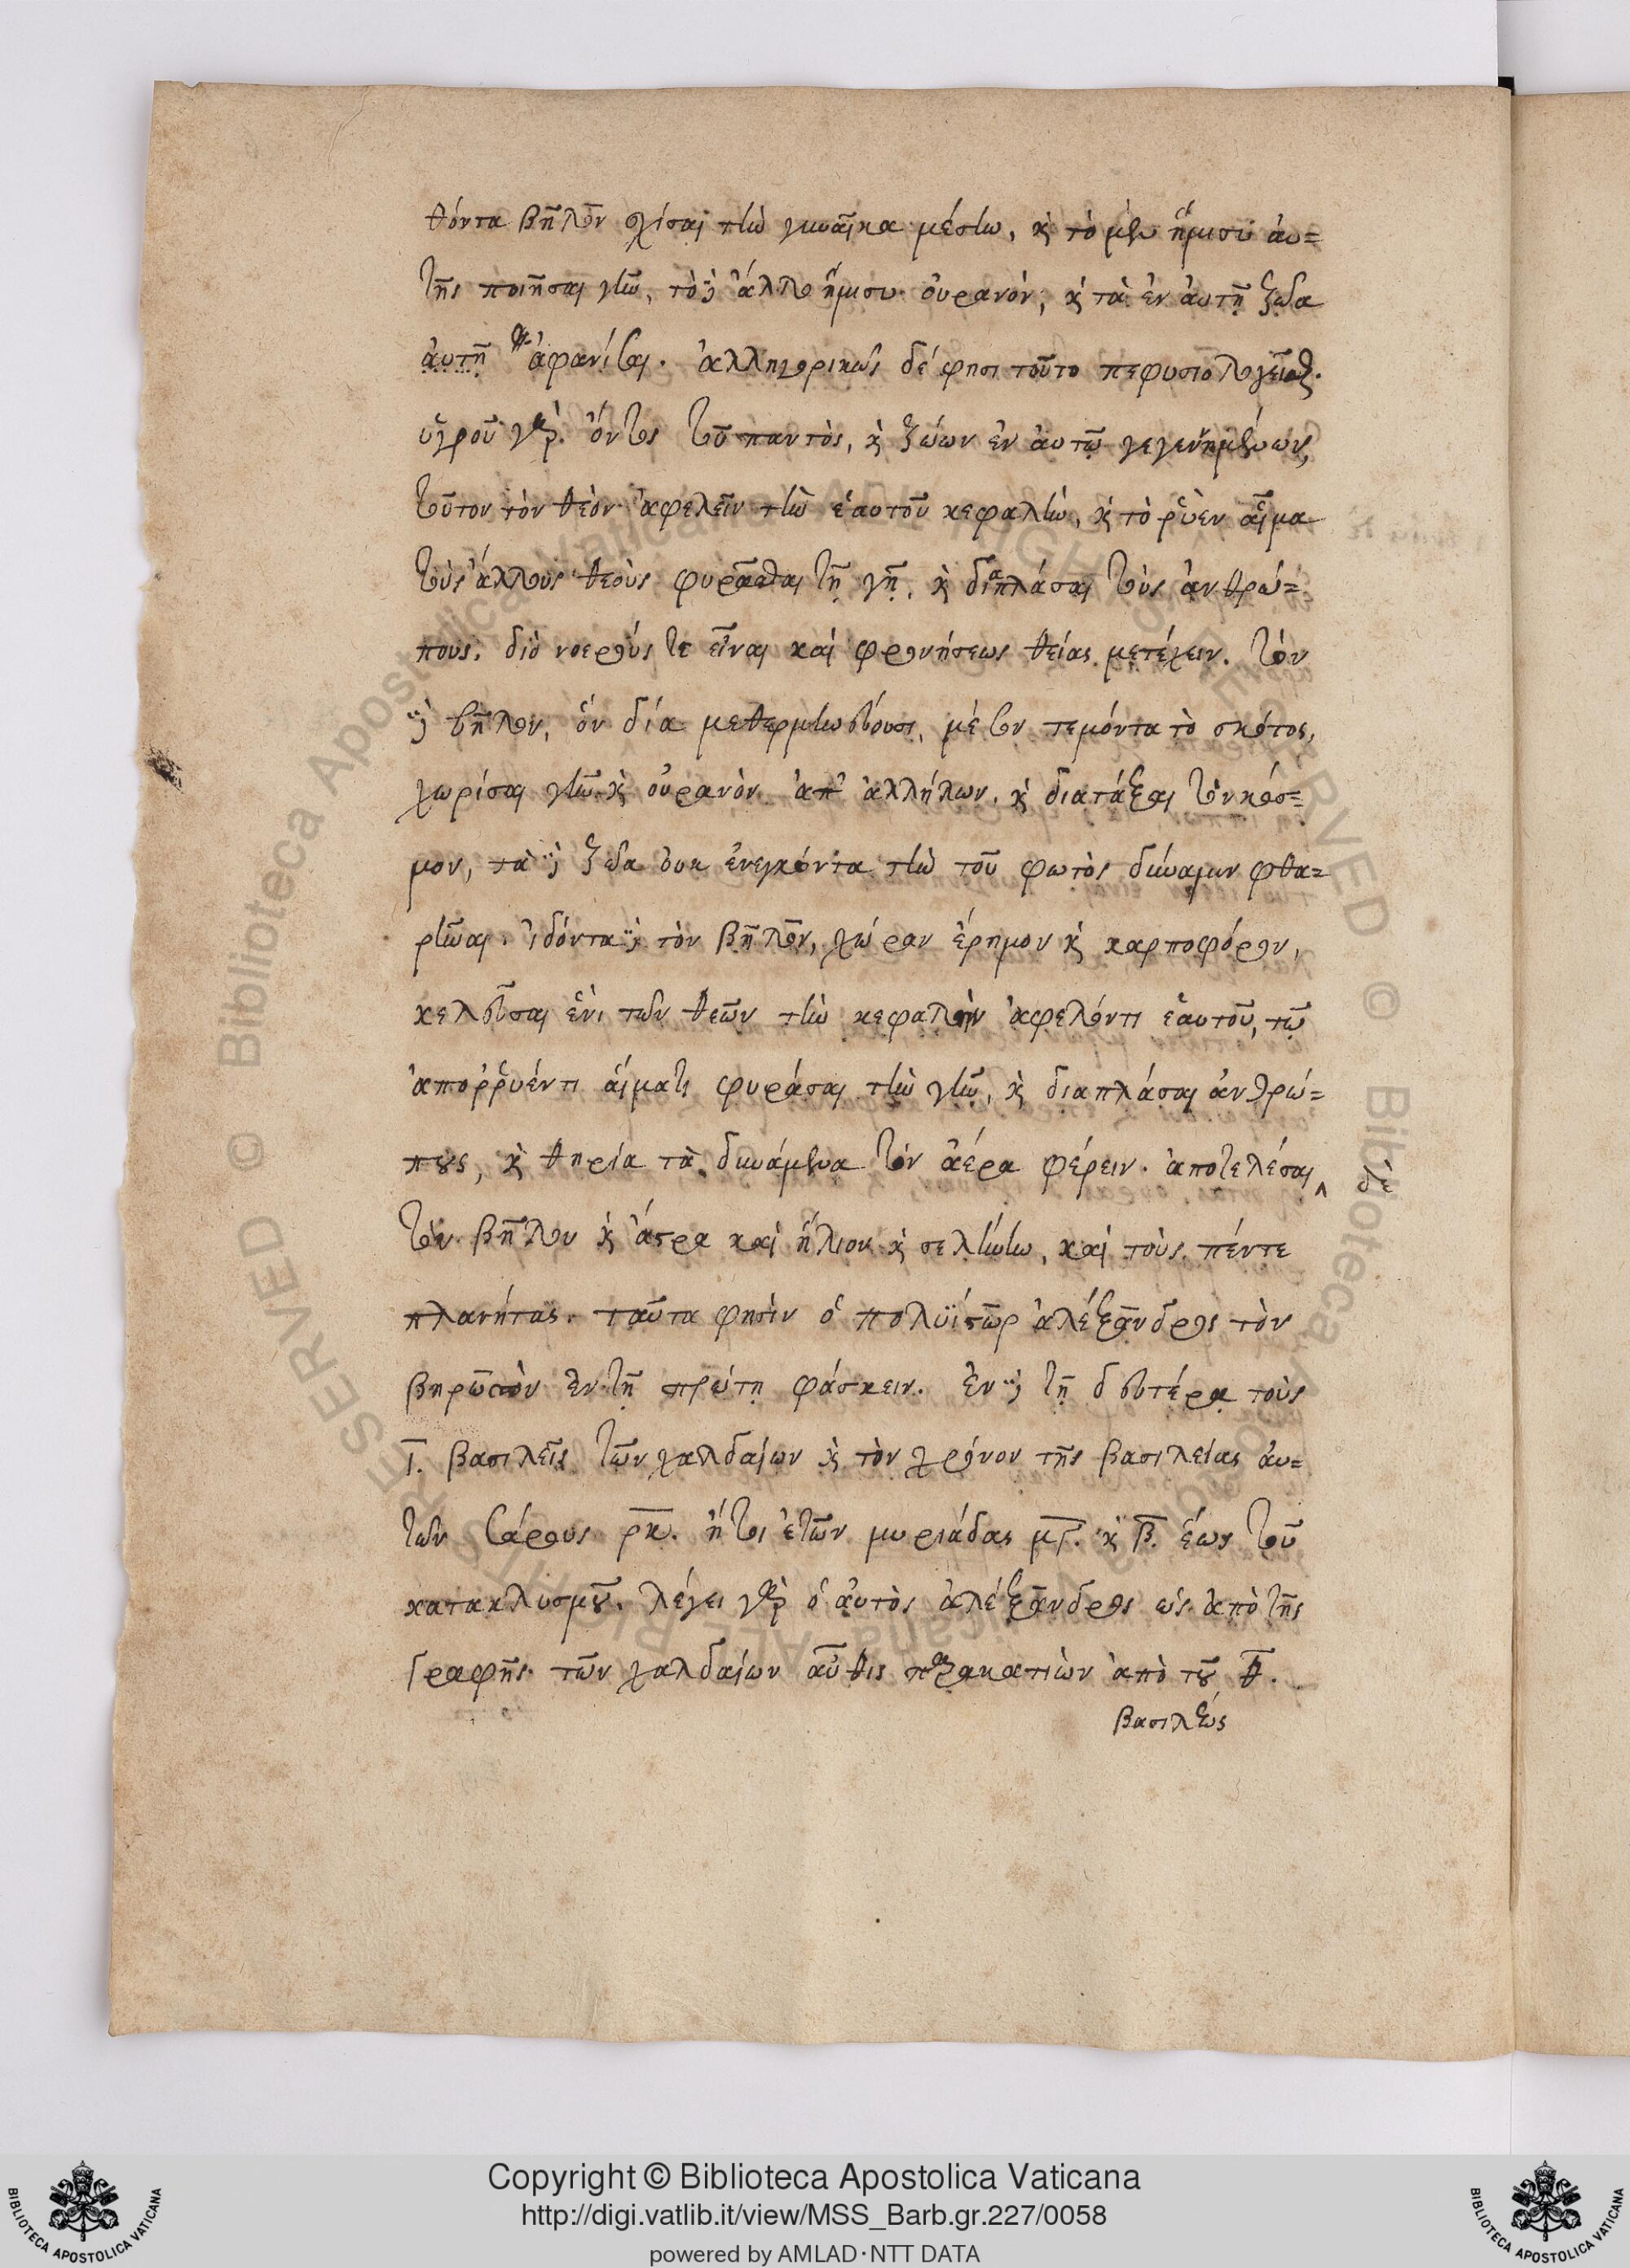 θόντα βῆλον σχίσαι τὴν γυναῖκα μέσην, καὶ τὸ μὲν ἥμισυ αὐ=
τῆς ποιῆσαι γῆν, τὸ δὲ ἄλλο ἥμισυ οὐρανόν, καὶ τὰ ἐν αὐτῇ ζῶα
αὐτῇ ἀφανίσαι. ἀλληγορικῶς δέ φησι τοῦτο πεφυσιολογεῖσθαι.
ὑγροῦ γὰρ ὄντος τοῦ παντὸς, καὶ ζώων ἐν αὐτῷ γεγενημένων,
τοῦτον τὸν θεὸν ἀφελεῖν τὴν ἑαυτοῦ κεφαλὴν, καὶ τὸ ῥυὲν αἷμα
τοὺς ἄλλους θεοὺς φυρᾶσαι τῇ γῇ, καὶ διαπλάσαι τοὺς ἀνθρώ=
πους. διὸ νοερούς τε εἶναι καὶ φρονήσεως θείας μετέχειν. τὸν
δὲ βῆλον, ὃν δία μεθερμηνεύουσι, μέσον τεμόντα τὸ σκότος,
χωρίσαι γῆν καὶ οὐρανὸν ἀπ' ἀλλήλων, καὶ διατάξαι τὸν κόσ=
μον, τὰ δὲ ζῶα οὐκ ἐνεγκόντα τὴν τοῦ φωτὸς δύναμιν φθα=
ρῆναι. ἰδόντα δὲ τὸν βῆλον, χώραν ἔρημον καὶ καρποφόρον,
κελεῦσαι ἑνὶ τῶν θεῶν τὴν κεφαλὴν ἀφελόντι ἑαυτοῦ, τῷ
ἀπορῤυέντι αἵματι φυράσαι τὴν γῆν, καὶ διαπλάσαι ἀνθρώ=
πους, καὶ θηρία τὰ δυνάμενα τὸν ἀέρα φέρειν. ἀποτελέσαι ‸ δὲ
τὸν βῆλον καὶ ἄστρα καὶ ἥλιον καὶ σελήνην, καὶ τοὺς πέντε
πλανήτας. ταῦτα φησὶν ὁ πολυΐστωρ ἀλέξανδρος τὸν
βηρωσσὸν ἐν τῇ πρώτῃ φάσκειν. ἐν δὲ τῇ δευτέρᾳ τοὺς
ι. βασιλεῖς τῶν χαλδαίων καὶ τὸν χρόνον τῆς βασιλείας αὐ=
τῶν σάρους ρκ. ἤτοι ἐτῶν μυριάδας μγ. καὶ β. ἕως τοῦ
κατακλυσμοῦ. λέγει γὰρ ὁ αὐτὸς ἀλέξανδρος ὡς ἀπὸ τῆς
γραφῆς τῶν χαλδαίων αὖθις παρακατιὼν ἀπὸ τοῦ θ.
βασιλέως
© Biblioteca Apostolica Vaticana ALL RIGHTS RESERVED
BIBLIOTECA APOSTOLICA VATICANA
Copyright © Biblioteca Apostolica Vaticana
http://digi.vatlib.it/view/MSS_Barb.gr.227/0058
powered by AMLAD·NTT DATA
BIBLIOTECA APOSTOLICA VATICANA